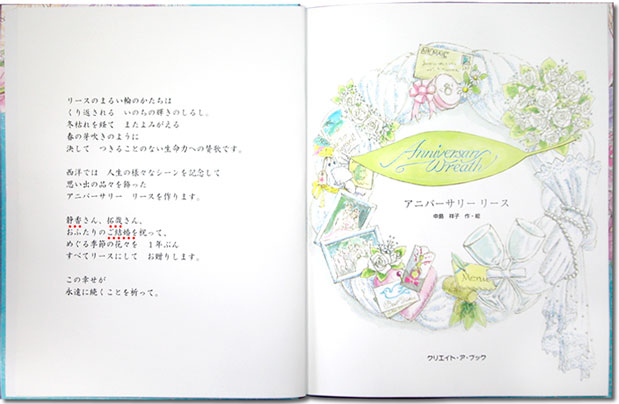 リースのまるい輪のかたちは
くり返される　いのちの輝きのしるし。
冬枯れを経て　またよみがえる
春の芽吹きのように
決して　つきることのない生命力への賛歌です。
西洋では　人生の様々なシーンを記念して
思い出の品々を飾った
アニバーサリー　リースを作ります。
静香さん、拓哉さん、
おふたりのご結婚を祝って、
めぐる季節の花々を　１年ぶん
すべてリースにして　お贈りします。
この幸せが
永遠に続くことを祈って。
Anniversary
Wreath
アニバーサリー リース
中島　祥子　作・絵
Menu
クリエイト・ア・ブック